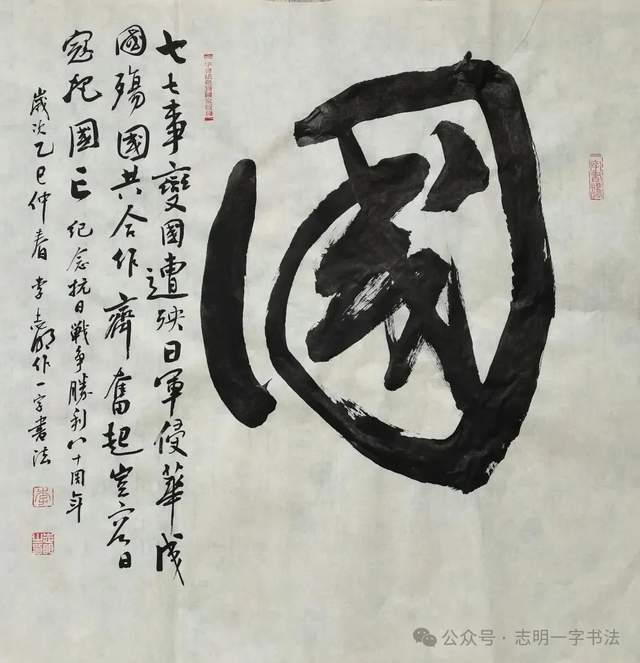 國
七七事變國遭殃日軍侵華成
國殤國共合作齊奮起豈容日
寇把國亡 紀念抗日戰争勝利八十周年
歲次乙巳仲春李志明作一字書法
公众号 · 志明一字书法